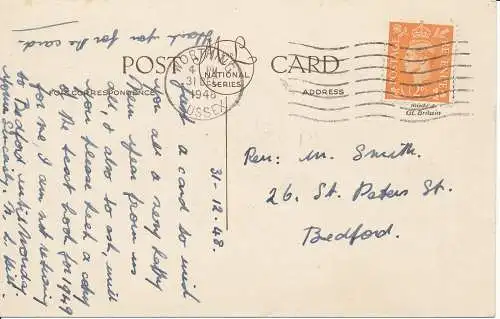 Thank you for the card.
POST CARD
NATIONAL
SERIES
FOR CORRESPONDENCE
ADDRESS
WORTHING
4
31 DEC
1948
SUSSEX
POSTAGE
REVENUE
Made in
Gt. Britain
31-12-48.
Just a card to wish
you all a very happy
New Year from us
all, & also to ask, will
you please keep a copy
of the text book for 1949
for me, I am not returning
to Bedford until Monday.
Yours Sincerely,
Rev: W. Smith.
26. St. Peters St.
Bedford.